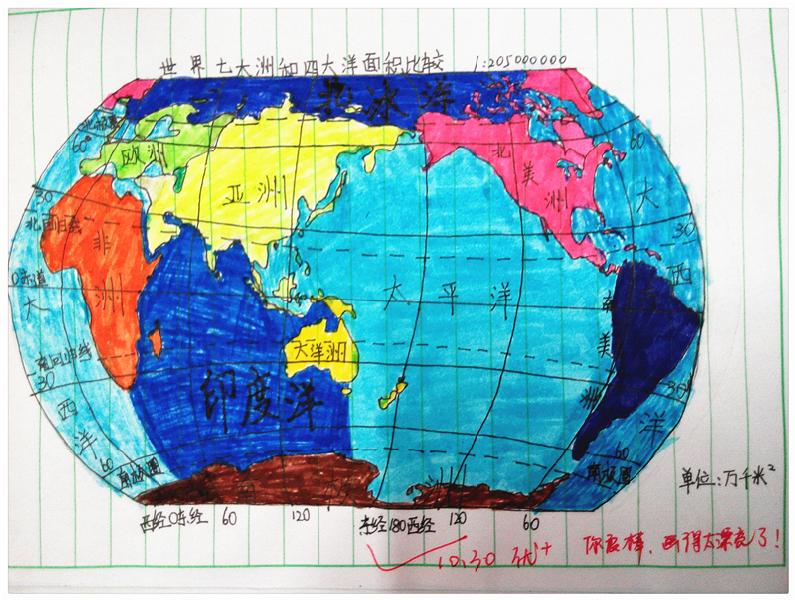 世界七大洲和四大洋面积比较 1:205000000
北冰洋
北极圈
60°
60
欧洲
亚洲
北美洲
大西洋
30
30
北回归线
非洲
0赤道
太平洋
大西洋
南美洲
大洋洲
南回归线
30
30
印度洋
60
60
南极圈
南极圈
南极洲
单位:万千米²
西经0东经 60 120 东经180西经 120 60
10.30 优+
你真棒,画得太漂亮了!